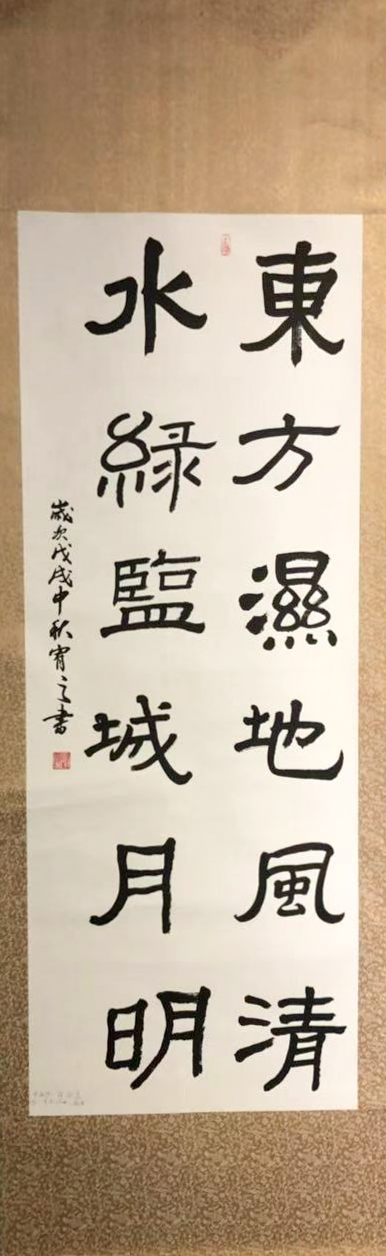 東方濕地風清
水綠臨城月明
歲次戊戌中秋宵之書